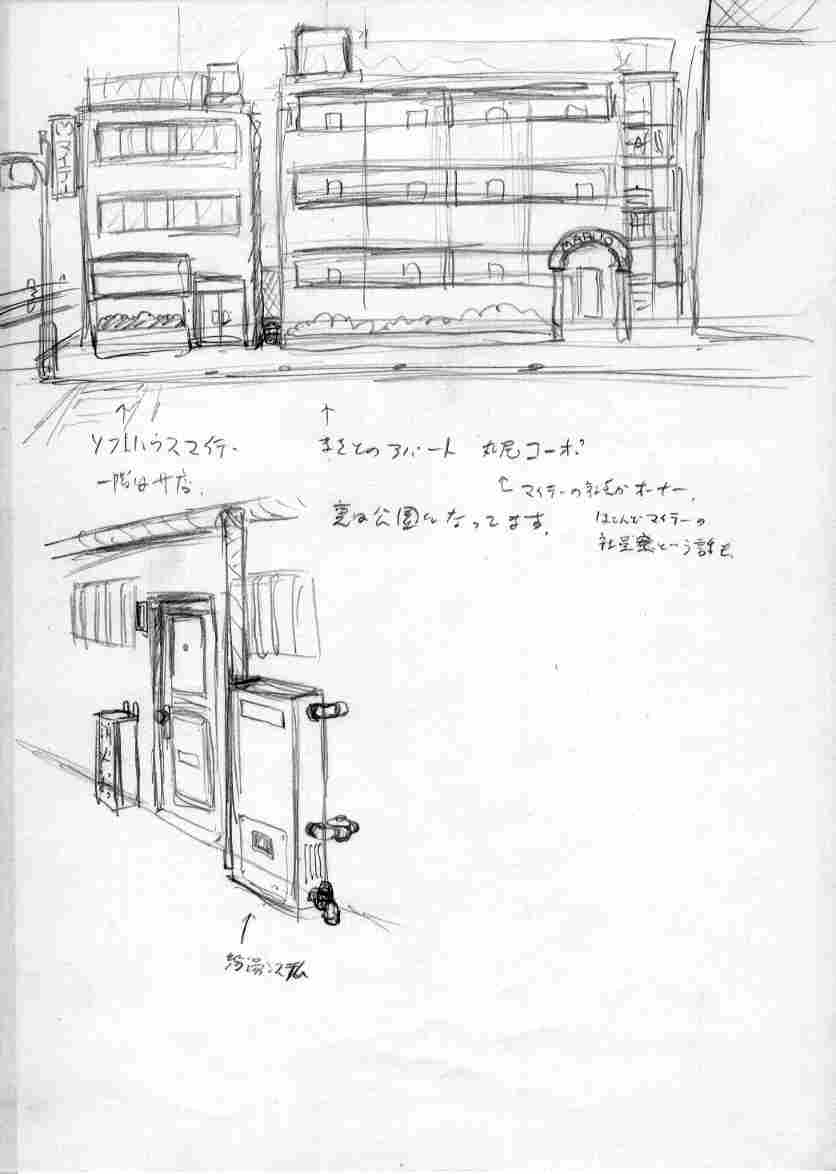 MARUO
↑
↑
ソフトハウスマイティー
まさとのアパート 丸尾コーポ
一階は廾店.
↑マイティーの社長がオーナー.
裏は公園になってます.
ほとんどマイティーの
社員寮という話も.
給湯システム